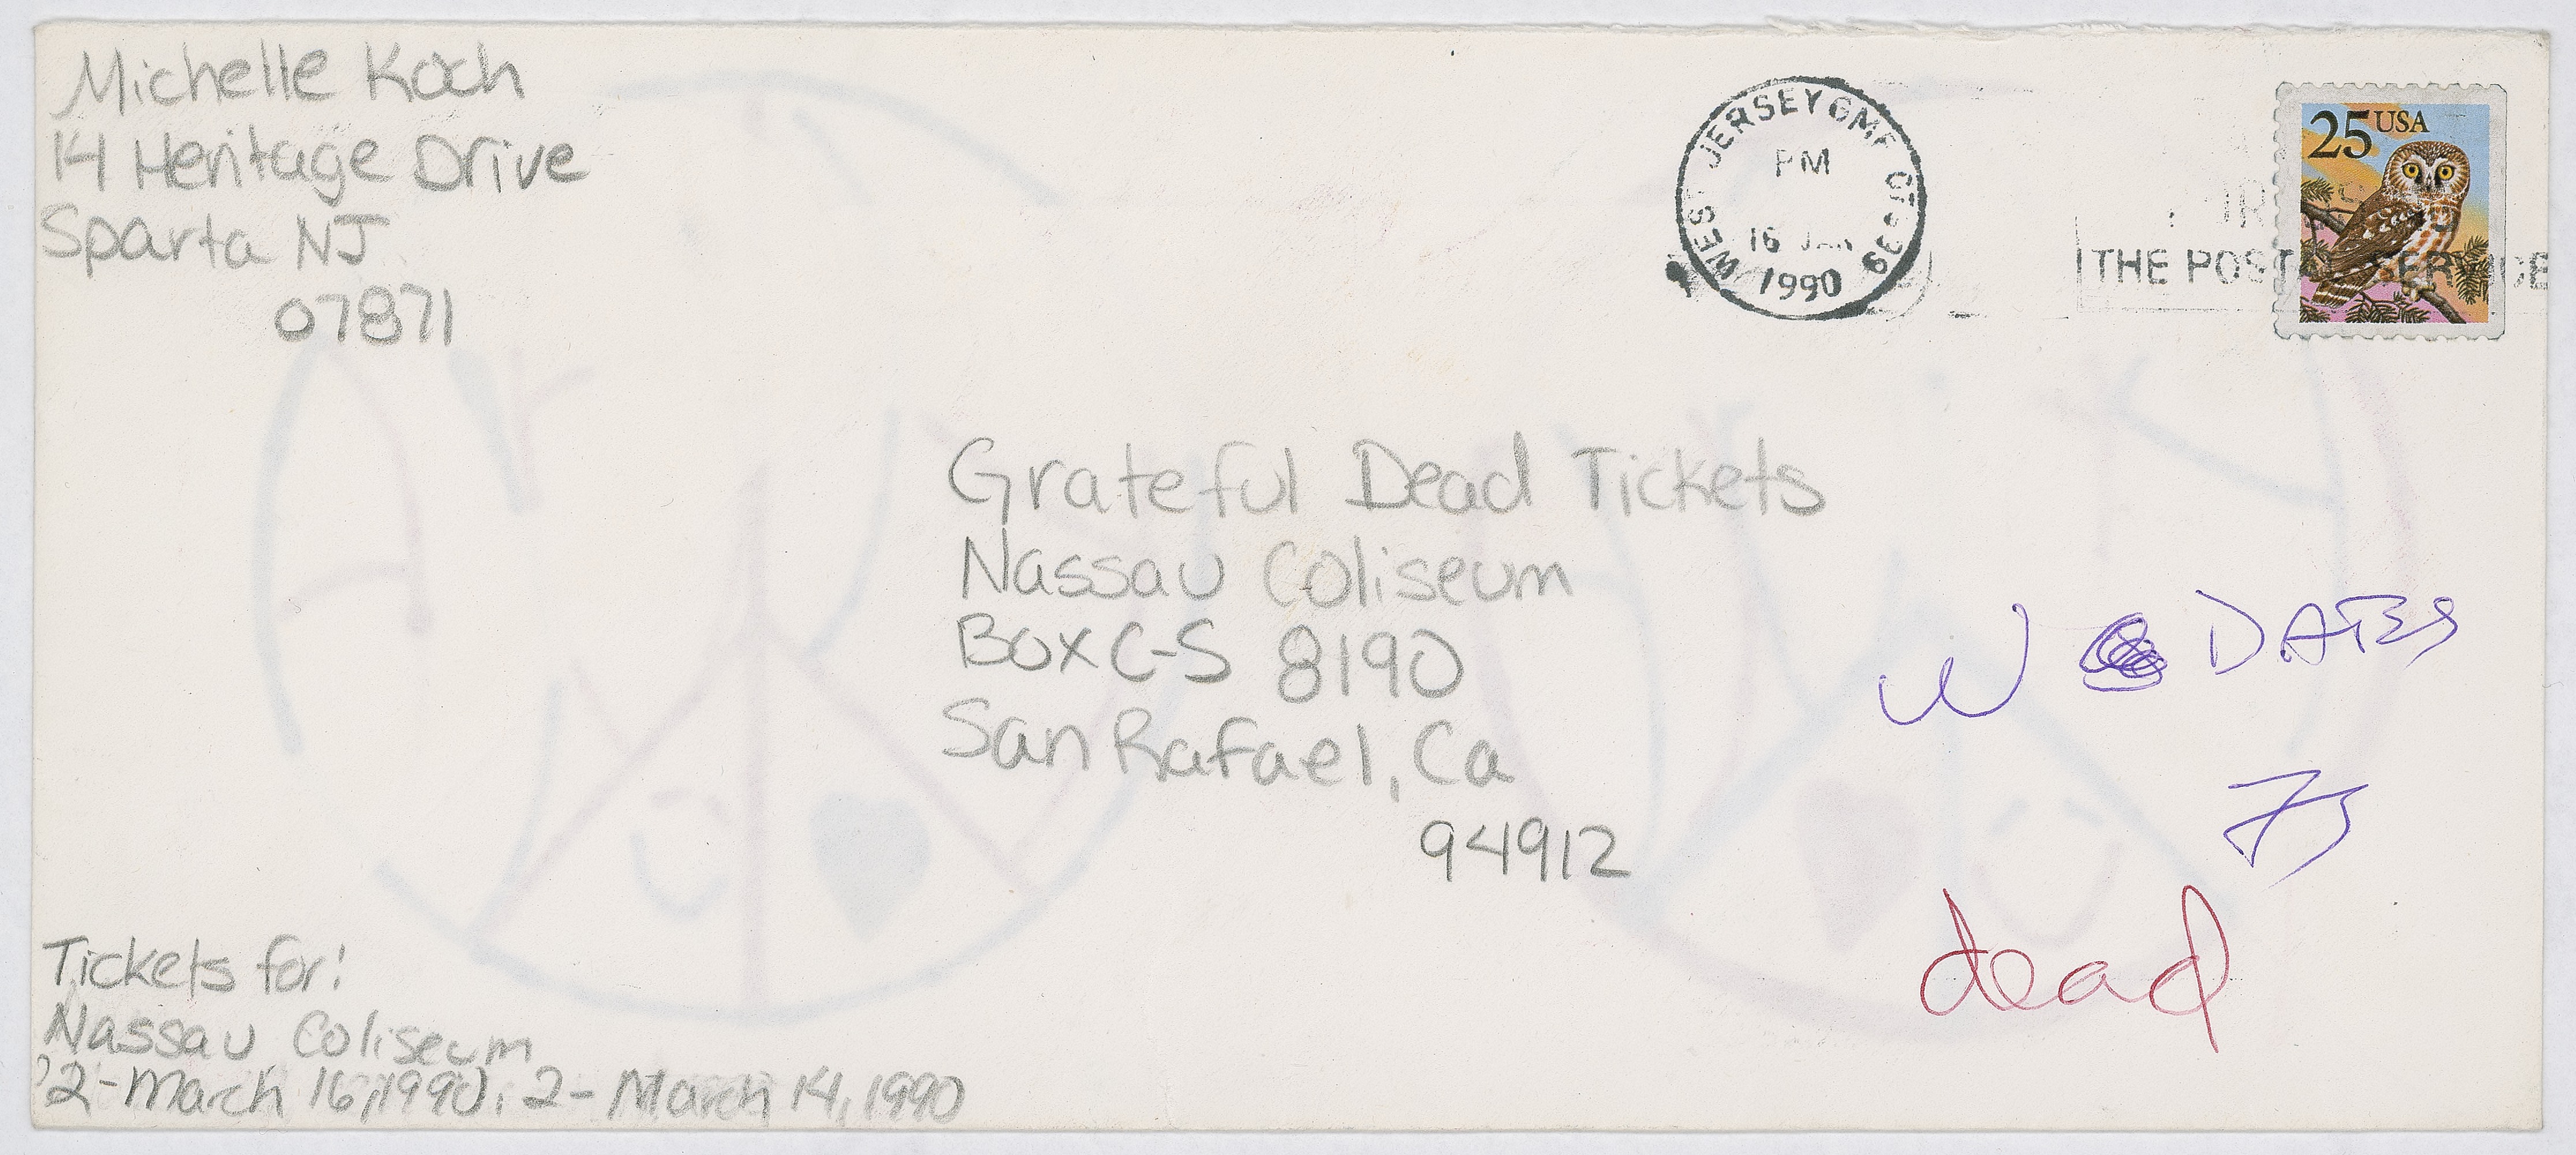 Michelle Koch
14 Heritage Drive
Sparta NJ
07871
WEST JERSEY GMF 07999
PM
16 JAN
1990
25 USA
THE POSTAL SERVICE
Grateful Dead Tickets
Nassau Coliseum
Box C-S 8190
San Rafael, Ca
94912
W DATES
dead
Tickets for!
Nassau Coliseum
2-March 16, 1990, 2-March 14, 1990